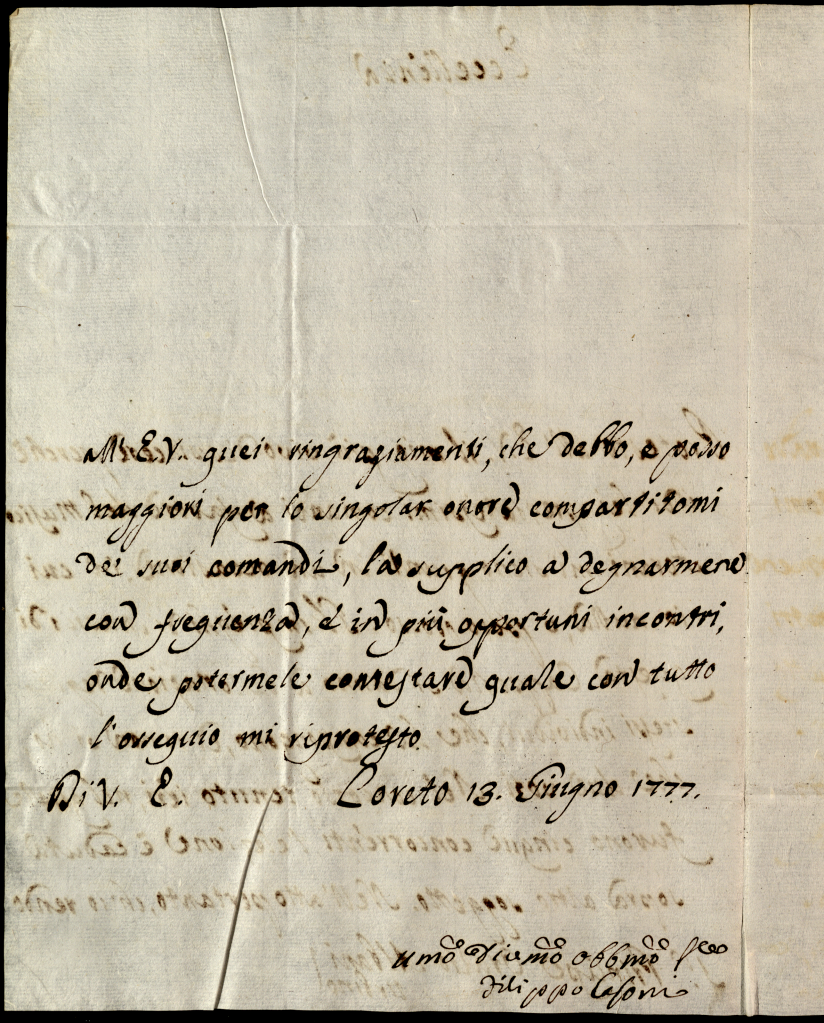 All' E. V. quei ringraziamenti, che debbo, e posso
maggiori per lo singolar onore compartitomi
de' suoi comandi, la supplico a degnarmene
con frequenza, e in più opportuni incontri,
onde potermele contestare quale con tutto
l'ossequio mi riprotesto
Di V. E. Loreto 13. Giugno 1777.
Umo Divmo Obbmo
Filippo Casoni